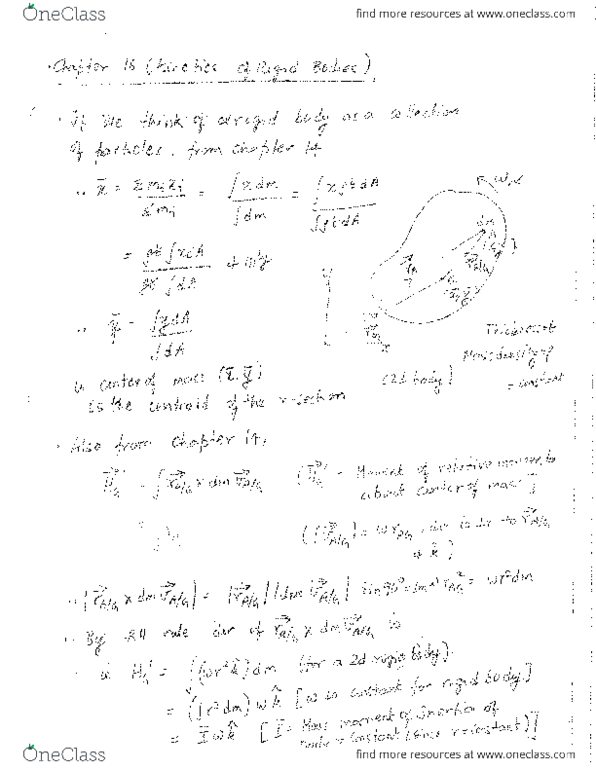 OneClass
find more resources at www.oneclass.com
Chapter 16 (Kinetics of Rigid Bodies)
. If we think of a rigid body as a collection
of particles, from chapter 14
∴ x̄ = Σmᵢxᵢ / Σmᵢ = ∫x dm / ∫dm = ∫xρt dA / ∫ρt dA
= ρt∫x dA / ρt∫dA
∴ ȳ = ∫y dA / ∫dA
Thickness t
Mass density ρ
= constant
(2d body)
∴ center of mass (x̄, ȳ)
is the centroid of the x-section
. Also from chapter 14,
H'_G = ∫ r_A/G x dm v_A/G ( H'_G = Moment of relative momenta
about center of mass ]
(|v_A/G| = ω r_A/G, dir is ⊥r to r_A/G
& k̂ ]
∴ | r_A/G x dm v_A/G | = | r_A/G | | dm v_A/G | sin 90° = dm ω r_A/G² = ωr²dm
∴ By RH rule dir of r_A/G x dm v_A/G is
∴ H'_G = ∫(ωr² k̂) dm (for a 2d rigid body)
= (∫r²dm) ω k̂ [ω is constant for rigid body]
= Ī ω k̂ [Ī = Mass moment of inertia of
= constant (since r = constant)]
OneClass
find more resources at www.oneclass.com